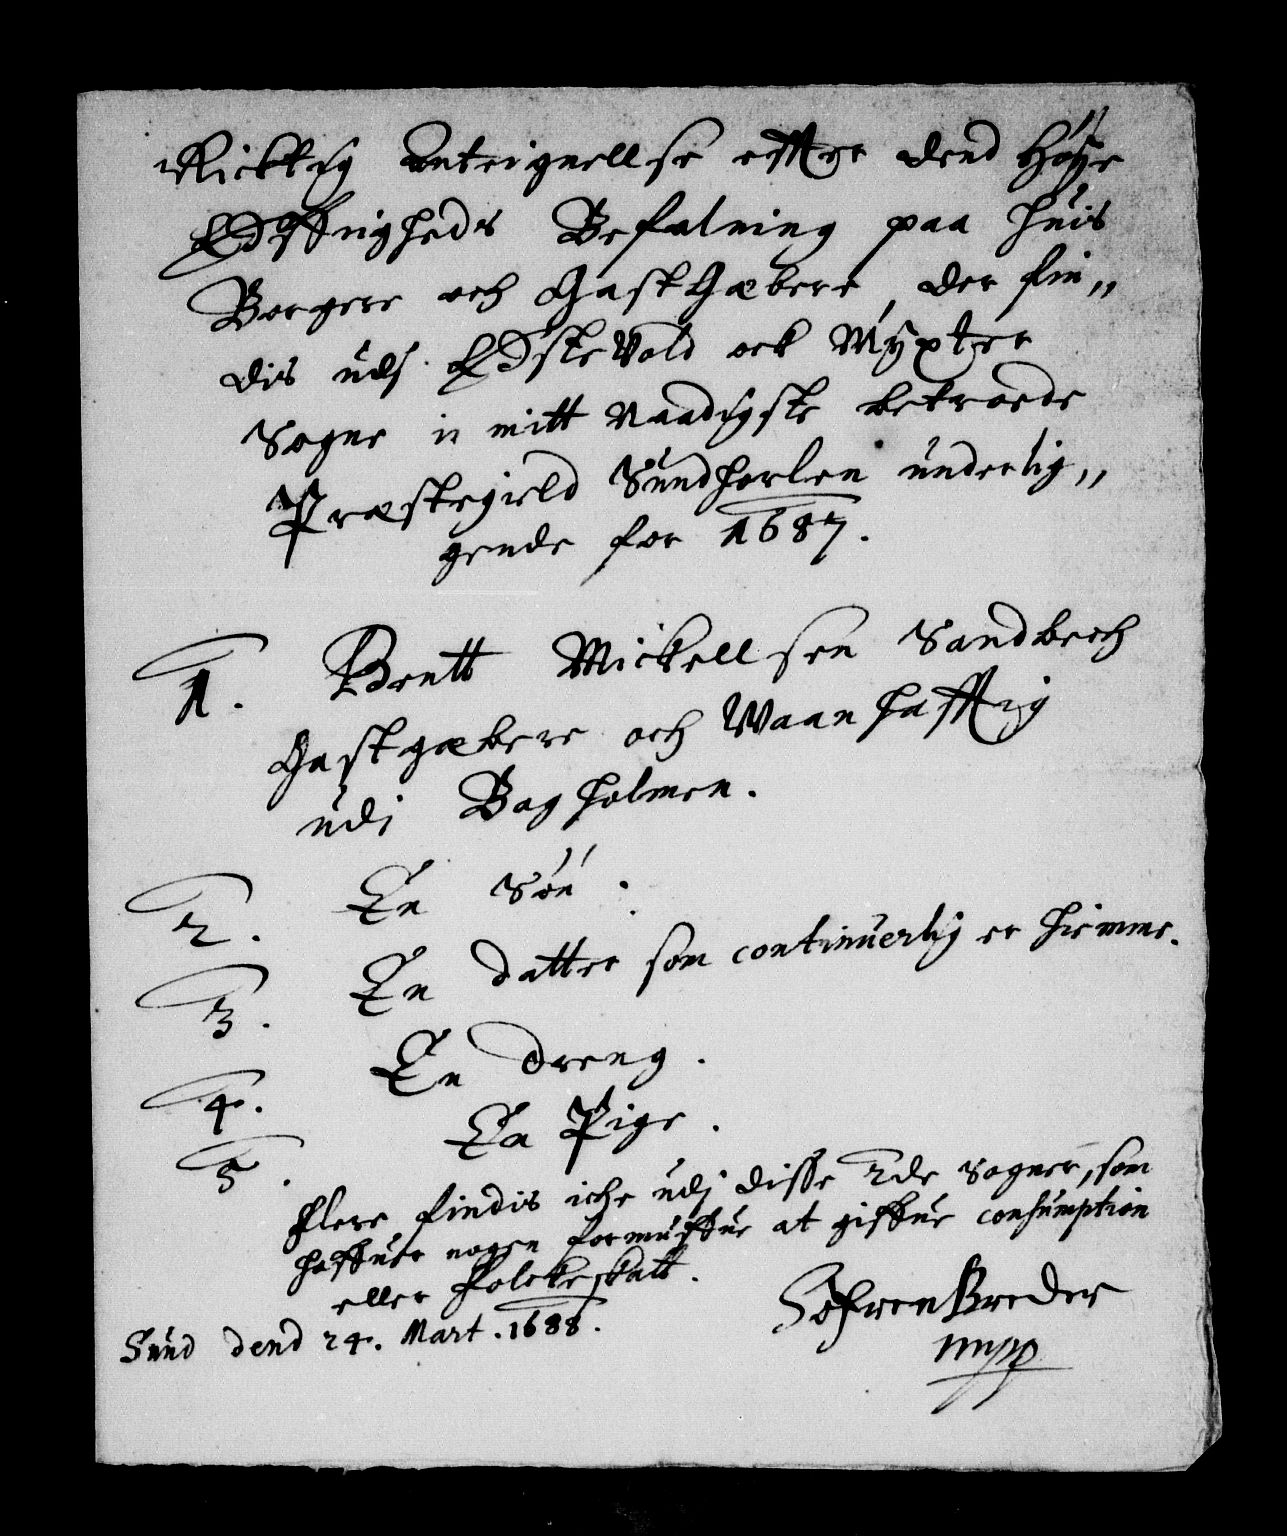 Ricktig Anteignellse effter dend Høÿe
Øffrigheds Befalning paa huis
Borgere och Gastgæbere, der fin,,
dis udj Edste Vold ock Mÿxter
Sogne ii mitt Naadigste betroede
Præstegield Sundhorlen underlig,,
gende for 1687.
1. Bentt Mickellsen Sandbech
Gastgæbere och Waanhafftig
udi Bagholmen.
2. En Søn.
3. En datter som continuerlig er hiemme.
4. En dreng.
5. En Pige.
Flere findis iche udj disse 2de Sogner, som
haffuer nogen formuffue at giffue consumption
eller Folckeskatt.
Sund dend 24. Mart. 1688.
Søfren Breder
mpp